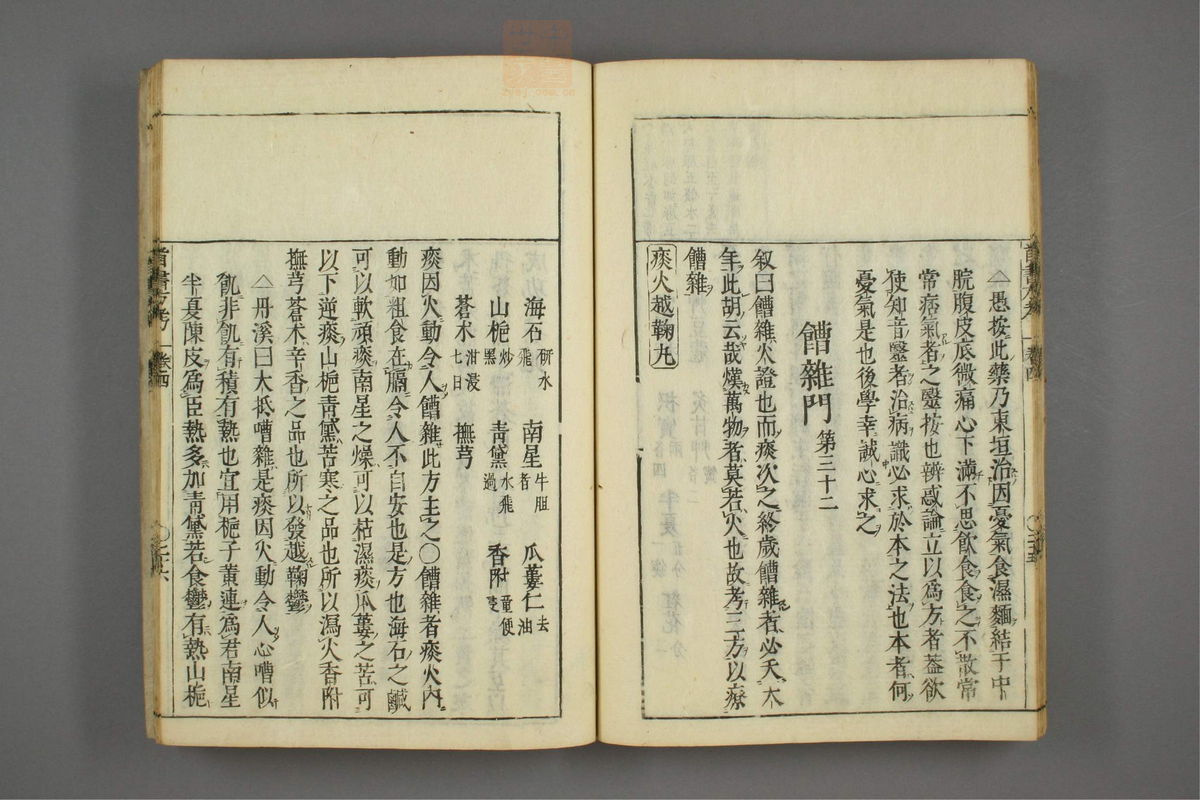 △愚按此藥乃東垣治因憂氣食濕麵結于中
脘腹皮底微痛心下滿不思飲食食之不散常
常痞氣者之毉按也辨惑論立以爲方者蓋欲
使知音毉者治病識心求於本之法也本者何
憂氣是也後學幸誠心求之
饋雜門第三十二
叙曰饋雜火證也而痰次之終歲饋雜者必夭天
年此胡云哉熯萬物者莫若火也故考三方以療
饋雜
痰火越鞠丸
海石研水飛 南星牛胆者 瓜蔞仁去油
山梔炒黑 青黛水飛過 香附童便
蒼朮泔浸七日 撫芎
痰因火動令人饋雜此方主之○饋雜者痰火內
動如粗食在膈令人不自安也是方也海石之鹹
可以軟頑痰南星之燥可以枯濕痰瓜蔞之苦可
以下逆痰山梔青黛苦寒之品也所以瀉火香附
撫芎蒼朮辛香之品也所以發越鞠鬱
△丹溪曰大抵嘈雜是痰因火動令人心嘈似
飢非飢有積有熱也宜用梔子黃連爲君南星
半夏陳皮爲臣熱多加青黛若食鬱有熱山梔
卷四